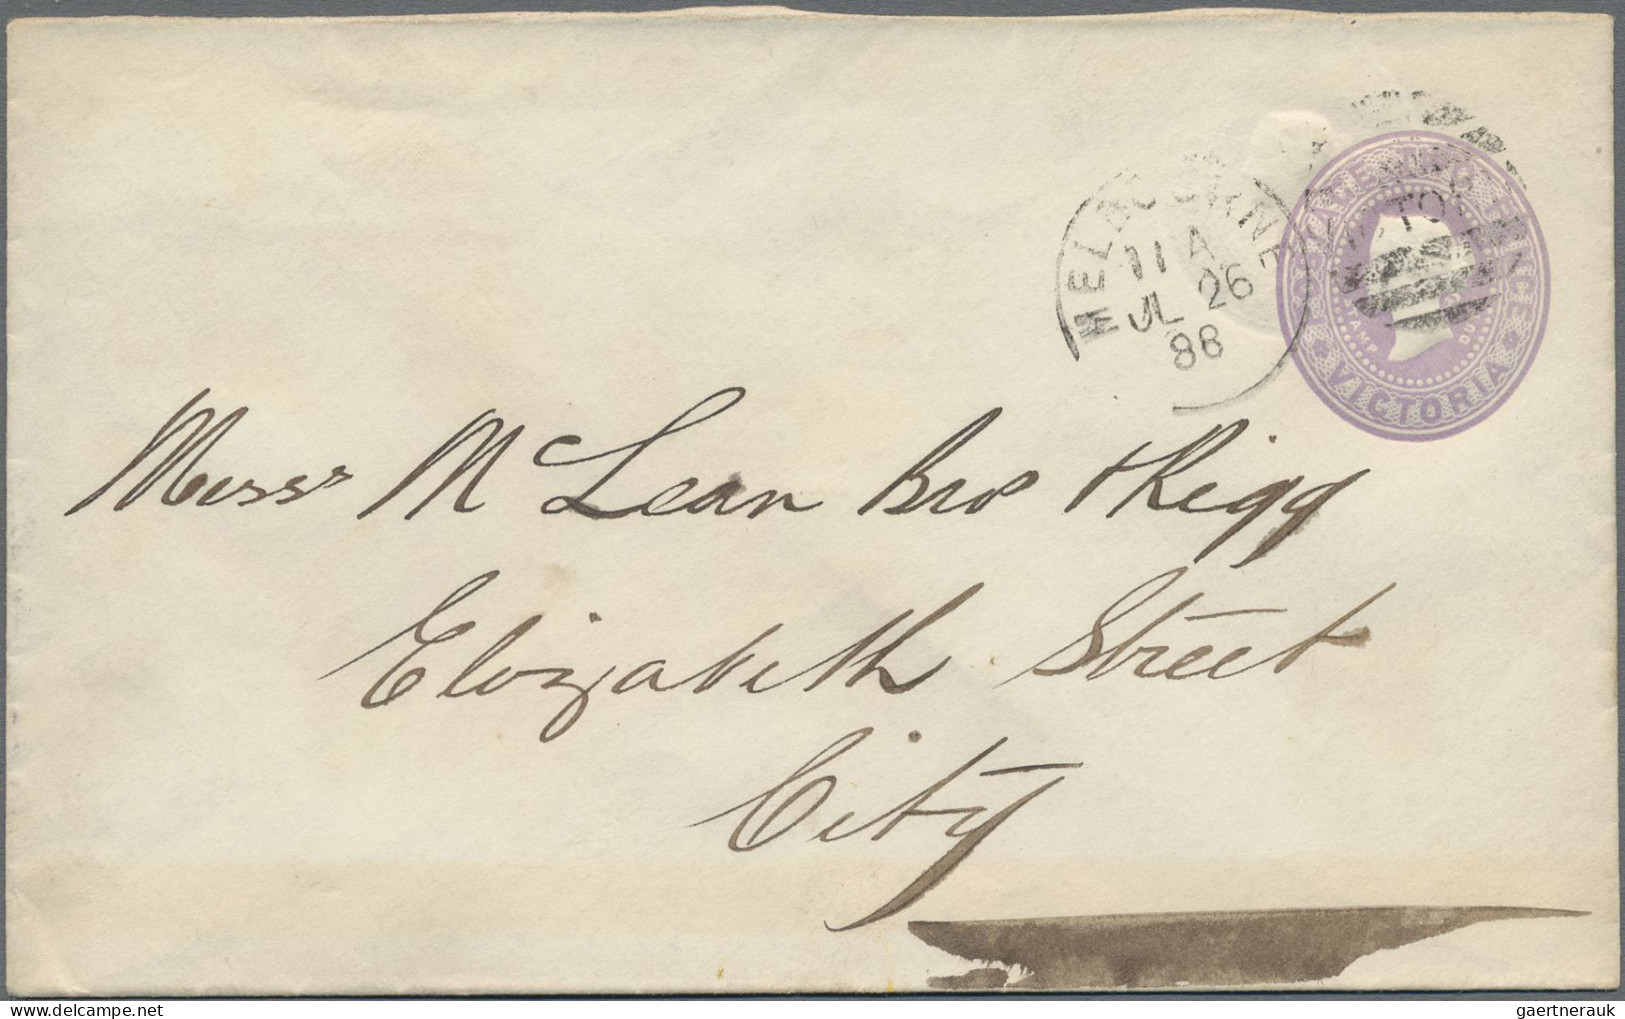 MELBOURNE
11 A
JL 26
88
STAMP DU
VICTORIA
Messrs McLean Bros & Rigg
Elizabeth Street
City
gaertnerauk